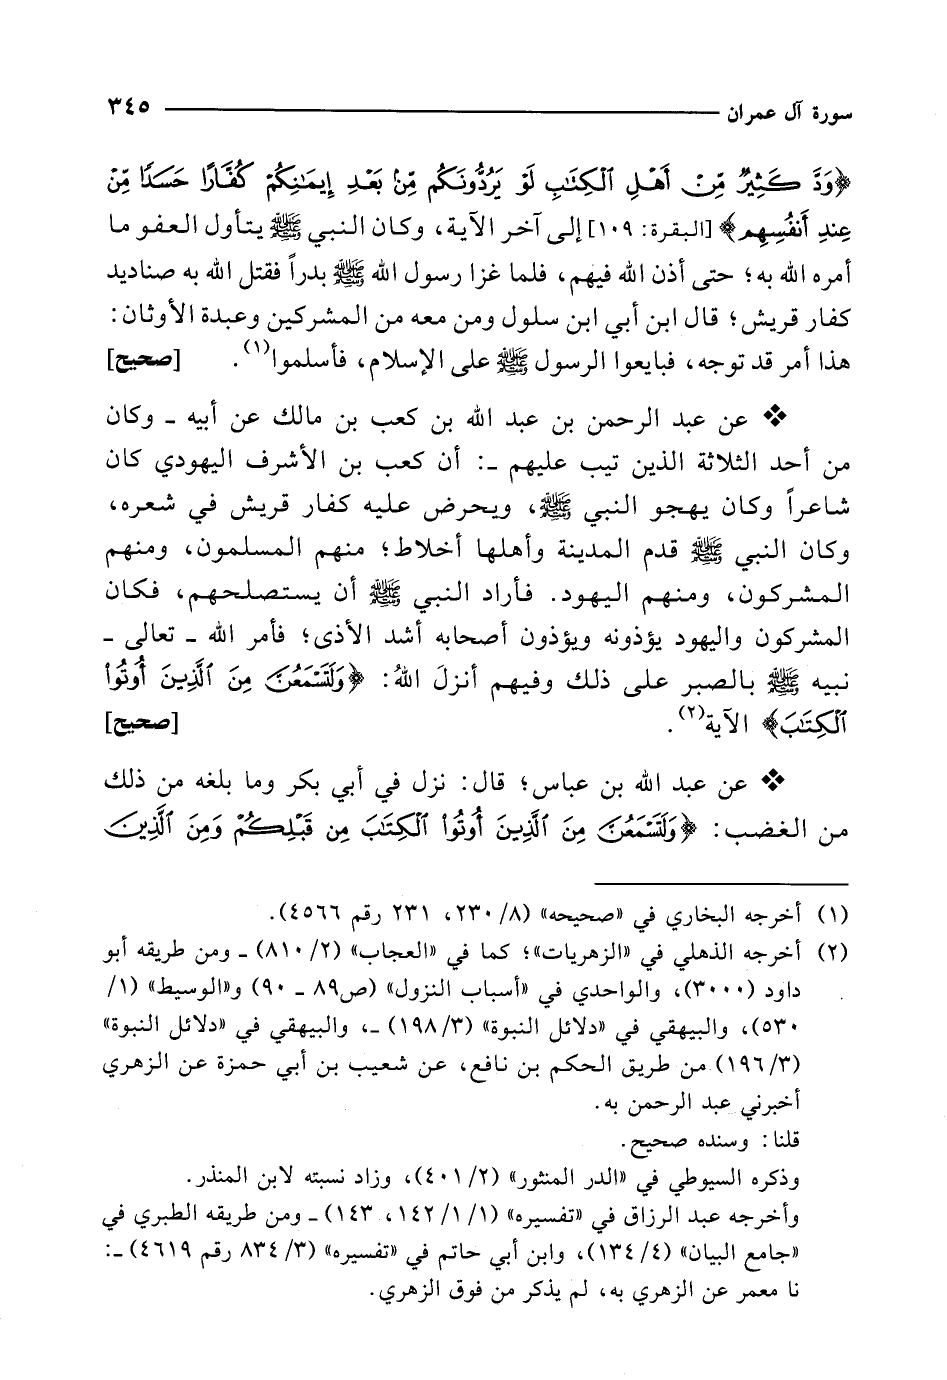 سورة آل عمران ٣٤٥
﴿وَدَّ كَثِيرٌ مِّنْ أَهْلِ ٱلْكِتَٰبِ لَوْ يَرُدُّونَكُم مِّنۢ بَعْدِ إِيمَٰنِكُمْ كُفَّارًا حَسَدًا مِّنْ
عِندِ أَنفُسِهِم﴾ [البقرة: ١٠٩] إلى آخر الآية، وكان النبي ﷺ يتأول العفو ما
أمره الله به؛ حتى أذن الله فيهم، فلما غزا رسول الله ﷺ بدراً فقتل الله به صناديد
كفار قريش؛ قال ابن أبي ابن سلول ومن معه من المشركين وعبدة الأوثان:
هذا أمر قد توجه، فبايعوا الرسول ﷺ على الإسلام، فأسلموا(١). [صحيح]
❖ عن عبد الرحمن بن عبد الله بن كعب بن مالك عن أبيه ـ وكان
من أحد الثلاثة الذين تيب عليهم ـ: أن كعب بن الأشرف اليهودي كان
شاعراً وكان يهجو النبي ﷺ، ويحرض عليه كفار قريش في شعره،
وكان النبي ﷺ قدم المدينة وأهلها أخلاط؛ منهم المسلمون، ومنهم
المشركون، ومنهم اليهود. فأراد النبي ﷺ أن يستصلحهم، فكان
المشركون واليهود يؤذونه ويؤذون أصحابه أشد الأذى؛ فأمر الله ـ تعالى ـ
نبيه ﷺ بالصبر على ذلك وفيهم أنزلَ اللهُ: ﴿وَلَتَسْمَعُنَّ مِنَ ٱلَّذِينَ أُوتُوا۟
ٱلْكِتَٰبَ﴾ الآية(٢). [صحيح]
❖ عن عبد الله بن عباس؛ قال: نزل في أبي بكر وما بلغه من ذلك
من الغضب: ﴿وَلَتَسْمَعُنَّ مِنَ ٱلَّذِينَ أُوتُوا۟ ٱلْكِتَٰبَ مِن قَبْلِكُمْ وَمِنَ ٱلَّذِينَ
(١) أخرجه البخاري في «صحيحه» (٨/ ٢٣٠، ٢٣١ رقم ٤٥٦٦).
(٢) أخرجه الذهلي في «الزهريات»؛ كما في «العجاب» (٢/ ٨١٠) ـ ومن طريقه أبو
داود (٣٠٠٠)، والواحدي في «أسباب النزول» (ص٨٩ ـ ٩٠) و«الوسيط» (١/
٥٣٠)، والبيهقي في «دلائل النبوة» (٣/ ١٩٨) ـ، والبيهقي في «دلائل النبوة»
(٣/ ١٩٦) من طريق الحكم بن نافع، عن شعيب بن أبي حمزة عن الزهري
أخبرني عبد الرحمن به.
قلنا: وسنده صحيح.
وذكره السيوطي في «الدر المنثور» (٢/ ٤٠١)، وزاد نسبته لابن المنذر.
وأخرجه عبد الرزاق في «تفسيره» (١/ ١/ ١٤٢، ١٤٣) ـ ومن طريقه الطبري في
«جامع البيان» (٤/ ١٣٤)، وابن أبي حاتم في «تفسيره» (٣/ ٨٣٤ رقم ٤٦١٩) ـ:
نا معمر عن الزهري به، لم يذكر من فوق الزهري.